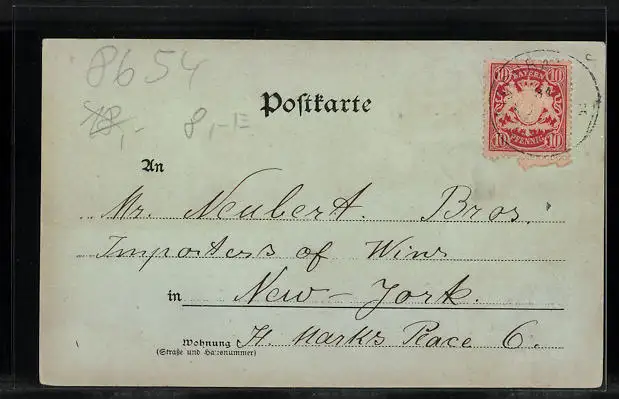 8654
18,- 8,-E
10 BAYERN 10
10 PFENNIG 10
Postkarte
An
Mr. Neubert. Bros.
Importers of Wine
in New-York.
Wohnung H. Marks Place 6.
(Straße und Hausnummer)